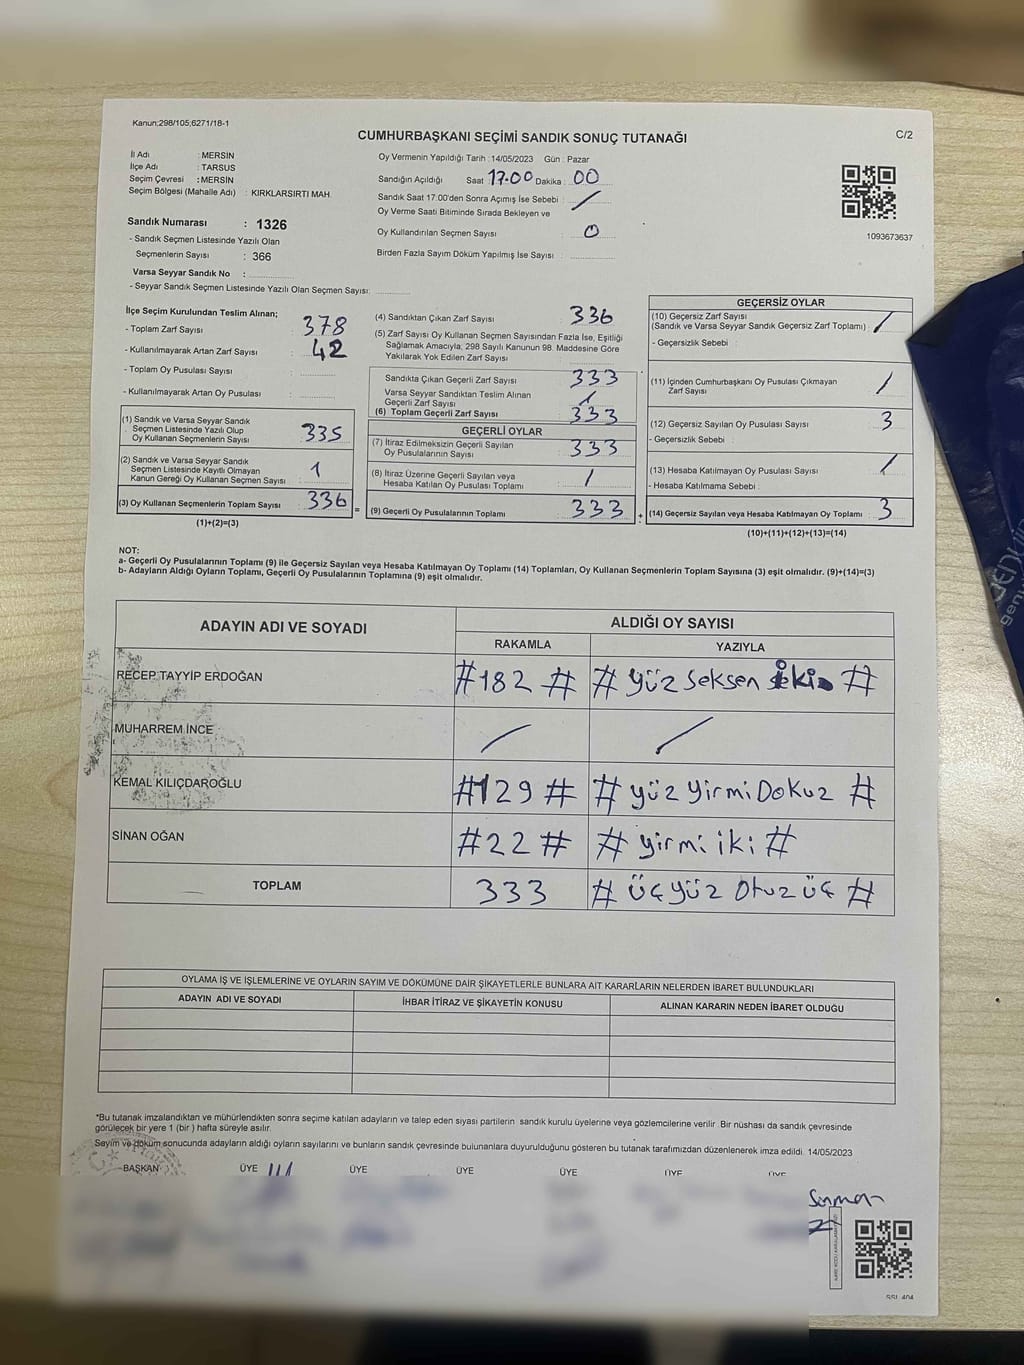 Kanun:298/105,6271/18-1
CUMHURBAŞKANI SEÇİMİ SANDIK SONUÇ TUTANAĞI
C/2
İl Adı : MERSİN
İlçe Adı : TARSUS
Seçim Çevresi : MERSİN
Seçim Bölgesi (Mahalle Adı) : KIRKLARSIRTI MAH.
Oy Vermenin Yapıldığı Tarih :14/05/2023 Gün : Pazar
Sandığın Açıldığı Saat : 17.00 Dakika : 00
Sandık Saat 17:00'den Sonra Açımış İse Sebebi : /
Oy Verme Saati Bitiminde Sırada Bekleyen ve
Oy Kullandırılan Seçmen Sayısı : 0
Birden Fazla Sayım Döküm Yapılmış İse Sayısı :
1093673637
Sandık Numarası : 1326
- Sandık Seçmen Listesinde Yazılı Olan
Seçmenlerin Sayısı : 366
Varsa Seyyar Sandık No :
- Seyyar Sandık Seçmen Listesinde Yazılı Olan Seçmen Sayısı:
İlçe Seçim Kurulundan Teslim Alınan;
- Toplam Zarf Sayısı : 378
- Kullanılmayarak Artan Zarf Sayısı : 42
- Toplam Oy Pusulası Sayısı :
- Kullanılmayarak Artan Oy Pusulası :
(1) Sandık ve Varsa Seyyar Sandık
Seçmen Listesinde Yazılı Olup
Oy Kullanan Seçmenlerin Sayısı : 335
(2) Sandık ve Varsa Seyyar Sandık
Seçmen Listesinde Kayıtlı Olmayan
Kanun Gereği Oy Kullanan Seçmen Sayısı : 1
(3) Oy Kullanan Seçmenlerin Toplam Sayısı : 336
(1)+(2)=(3)
=
(4) Sandıktan Çıkan Zarf Sayısı : 336
(5) Zarf Sayısı Oy Kullanan Seçmen Sayısından Fazla İse, Eşitliği
Sağlamak Amacıyla; 298 Sayılı Kanunun 98. Maddesine Göre
Yakılarak Yok Edilen Zarf Sayısı :
Sandıkta Çıkan Geçerli Zarf Sayısı : 333
Varsa Seyyar Sandıktan Teslim Alınan
Geçerli Zarf Sayısı : /
(6) Toplam Geçerli Zarf Sayısı : 333
GEÇERLİ OYLAR
(7) İtiraz Edilmeksizin Geçerli Sayılan
Oy Pusulalarının Sayısı : 333
(8) İtiraz Üzerine Geçerli Sayılan veya
Hesaba Katılan Oy Pusulası Toplamı : /
(9) Geçerli Oy Pusulalarının Toplamı : 333
+
GEÇERSİZ OYLAR
(10) Geçersiz Zarf Sayısı
(Sandık ve Varsa Seyyar Sandık Geçersiz Zarf Toplamı) : /
- Geçersizlik Sebebi :
(11) İçinden Cumhurbaşkanı Oy Pusulası Çıkmayan
Zarf Sayısı : /
(12) Geçersiz Sayılan Oy Pusulası Sayısı : 3
- Geçersizlik Sebebi :
(13) Hesaba Katılmayan Oy Pusulası Sayısı : /
- Hesaba Katılmama Sebebi :
(14) Geçersiz Sayılan veya Hesaba Katılmayan Oy Toplamı : 3
(10)+(11)+(12)+(13)=(14)
NOT:
a- Geçerli Oy Pusulalarının Toplamı (9) ile Geçersiz Sayılan veya Hesaba Katılmayan Oy Toplamı (14) Toplamları, Oy Kullanan Seçmenlerin Toplam Sayısına (3) eşit olmalıdır. (9)+(14)=(3)
b- Adayların Aldığı Oyların Toplamı, Geçerli Oy Pusulalarının Toplamına (9) eşit olmalıdır.
ADAYIN ADI VE SOYADI
ALDIĞI OY SAYISI
RAKAMLA YAZIYLA
RECEP TAYYİP ERDOĞAN #182 # # yüz seksen iki #
MUHARREM İNCE / /
KEMAL KILIÇDAROĞLU #129 # # yüz yirmi Dokuz #
SİNAN OĞAN #22 # # yirmi iki #
TOPLAM 333 # üç yüz otuz üç #
OYLAMA İŞ VE İŞLEMLERİNE VE OYLARIN SAYIM VE DÖKÜMÜNE DAİR ŞİKAYETLERLE BUNLARA AİT KARARLARIN NELERDEN İBARET BULUNDUKLARI
ADAYIN ADI VE SOYADI İHBAR İTİRAZ VE ŞİKAYETİN KONUSU ALINAN KARARIN NEDEN İBARET OLDUĞU
*Bu tutanak imzalandıktan ve mühürlendikten sonra seçime katılan adayların ve talep eden siyası partilerin sandık kurulu üyelerine veya gözlemcilerine verilir. Bir nüshası da sandık çevresinde
görülecek bir yere 1 (bir ) hafta süreyle asılır.
Sayım ve döküm sonucunda adayların aldığı oyların sayılarını ve bunların sandık çevresinde bulunanlara duyurulduğunu gösteren bu tutanak tarafımızdan düzenlenerek imza edildi. 14/05/2023
BAŞKAN ÜYE ÜYE ÜYE ÜYE ÜYE ÜYE